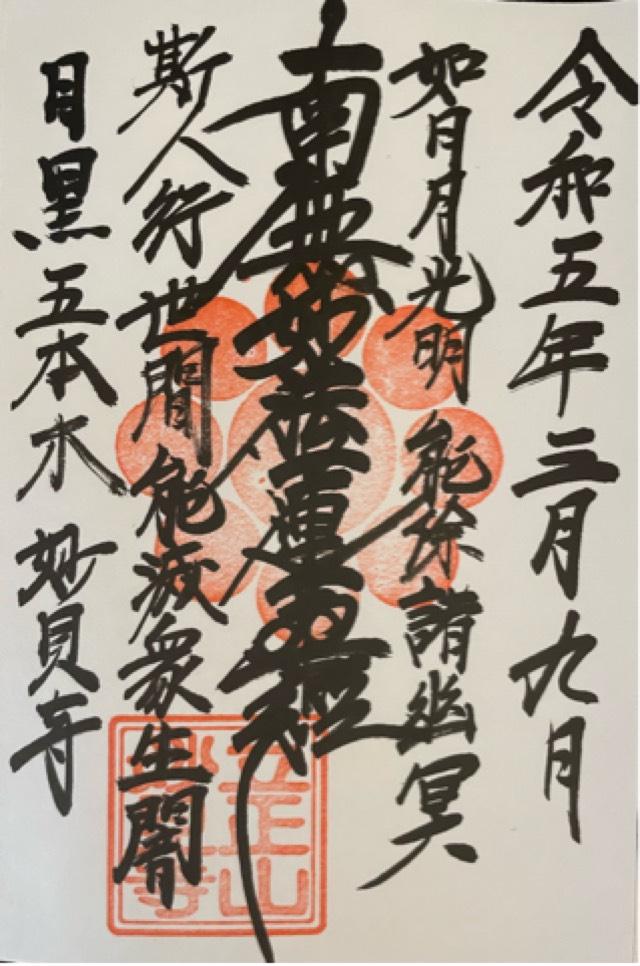 令和五年三月九月
如日月光明 能除諸幽冥
南無妙法蓮華経
斯人行世間 能滅衆生闇
目黒五本木 妙貝寺
立正山